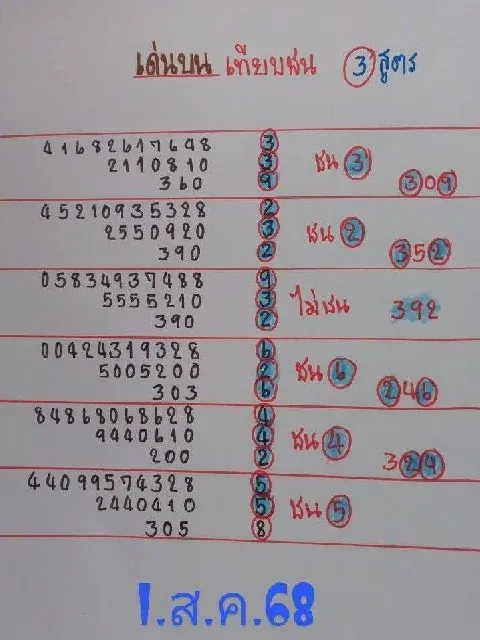 เด่นบน เทียบชน 3 สูตร
41682617648 3
2110810 3 ชน 3
360 9 309
45210935328 2
2550920 3 ชน 2
390 2 352
05834937488 9
5555210 3 ไม่ชน 392
390 2
00424319328 6
5005200 2 ชน 6
303 6 246
84868068628 4
9440610 4 ชน 4
200 2 324
44099574328 5
2440410 5 ชน 5
305 8
1.ส.ค.68